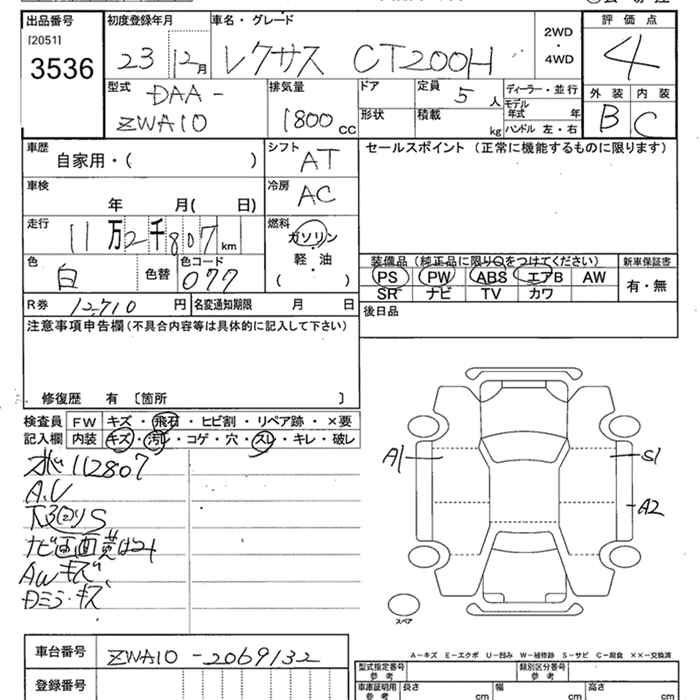 出品番号 初度登録年月 車名・グレード 評価点
[2051]
3536 23 12月 レクサス CT200H 2WD・4WD 4
型式 排気量 ドア 定員 ディーラー・並行 外装 内装
DAA- 5人 モデル年式 年
ZWA10 1800cc 形状 積載 kg ハンドル 左・右 B C
車歴 シフト セールスポイント (正常に機能するものに限ります)
自家用・( ) AT
車検 冷房
年 月( 日) AC
走行 燃料
11万2千807km ガソリン
色 色コード 軽・油 装備品 (純正品に限り○をつけてください) 新車保証書
白 色替 077 ( ) PS PW ABS エアB AW 有・無
SR ナビ TV カワ
R券 12,710円 名変通知期限 月 日 後日品
注意事項申告欄 (不具合内容等は具体的に記入して下さい)
修復歴 有 〔箇所 〕
検査員 FW キズ・飛石・ヒビ割・リペア跡・×要
記入欄 内装 キズ・汚レ・コゲ・穴・スレ・キレ・破レ
112807
A.U
S
ナビ画面
AWキズ
Dミラ・キズ
A1 S1
A2
スペア
A−キズ E−エクボ U−凹み W−補修跡 S−サビ C−腐食 ××−交換済
車台番号 ZWA10-2069132
型式指定番号 参考 類別区分番号 参考
登録番号 車庫証明用 参考 長さ cm 幅 cm 高さ cm